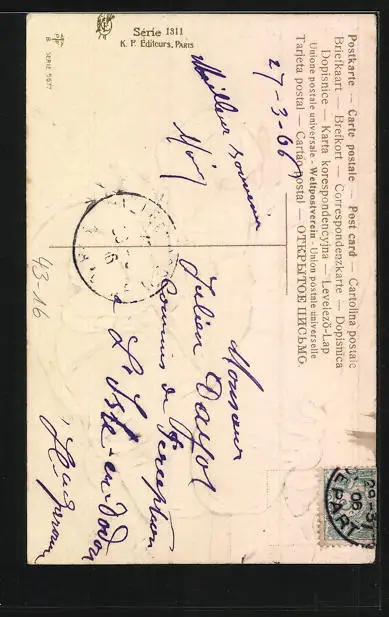 Série 1311
K. F. Editeurs, Paris
SERIE 5677
Postkarte — Carte postale — Post card — Cartolina postale
Briefkaart — Brefkort — Correspondenzkarte — Dopisnica
Dopisnice — Karta korespondencyjna — Levelező-Lap
Unione postale universale - Weltpostverein - Union postale universelle
Tarjeta postal — Cartão postal — ОТКРЫТОЕ ПИСЬМО.
27-3-06
Meilleur souvenir
Monsieur
Julien
Commis de Perception
L'Isle-en-Dodon
43-16
06